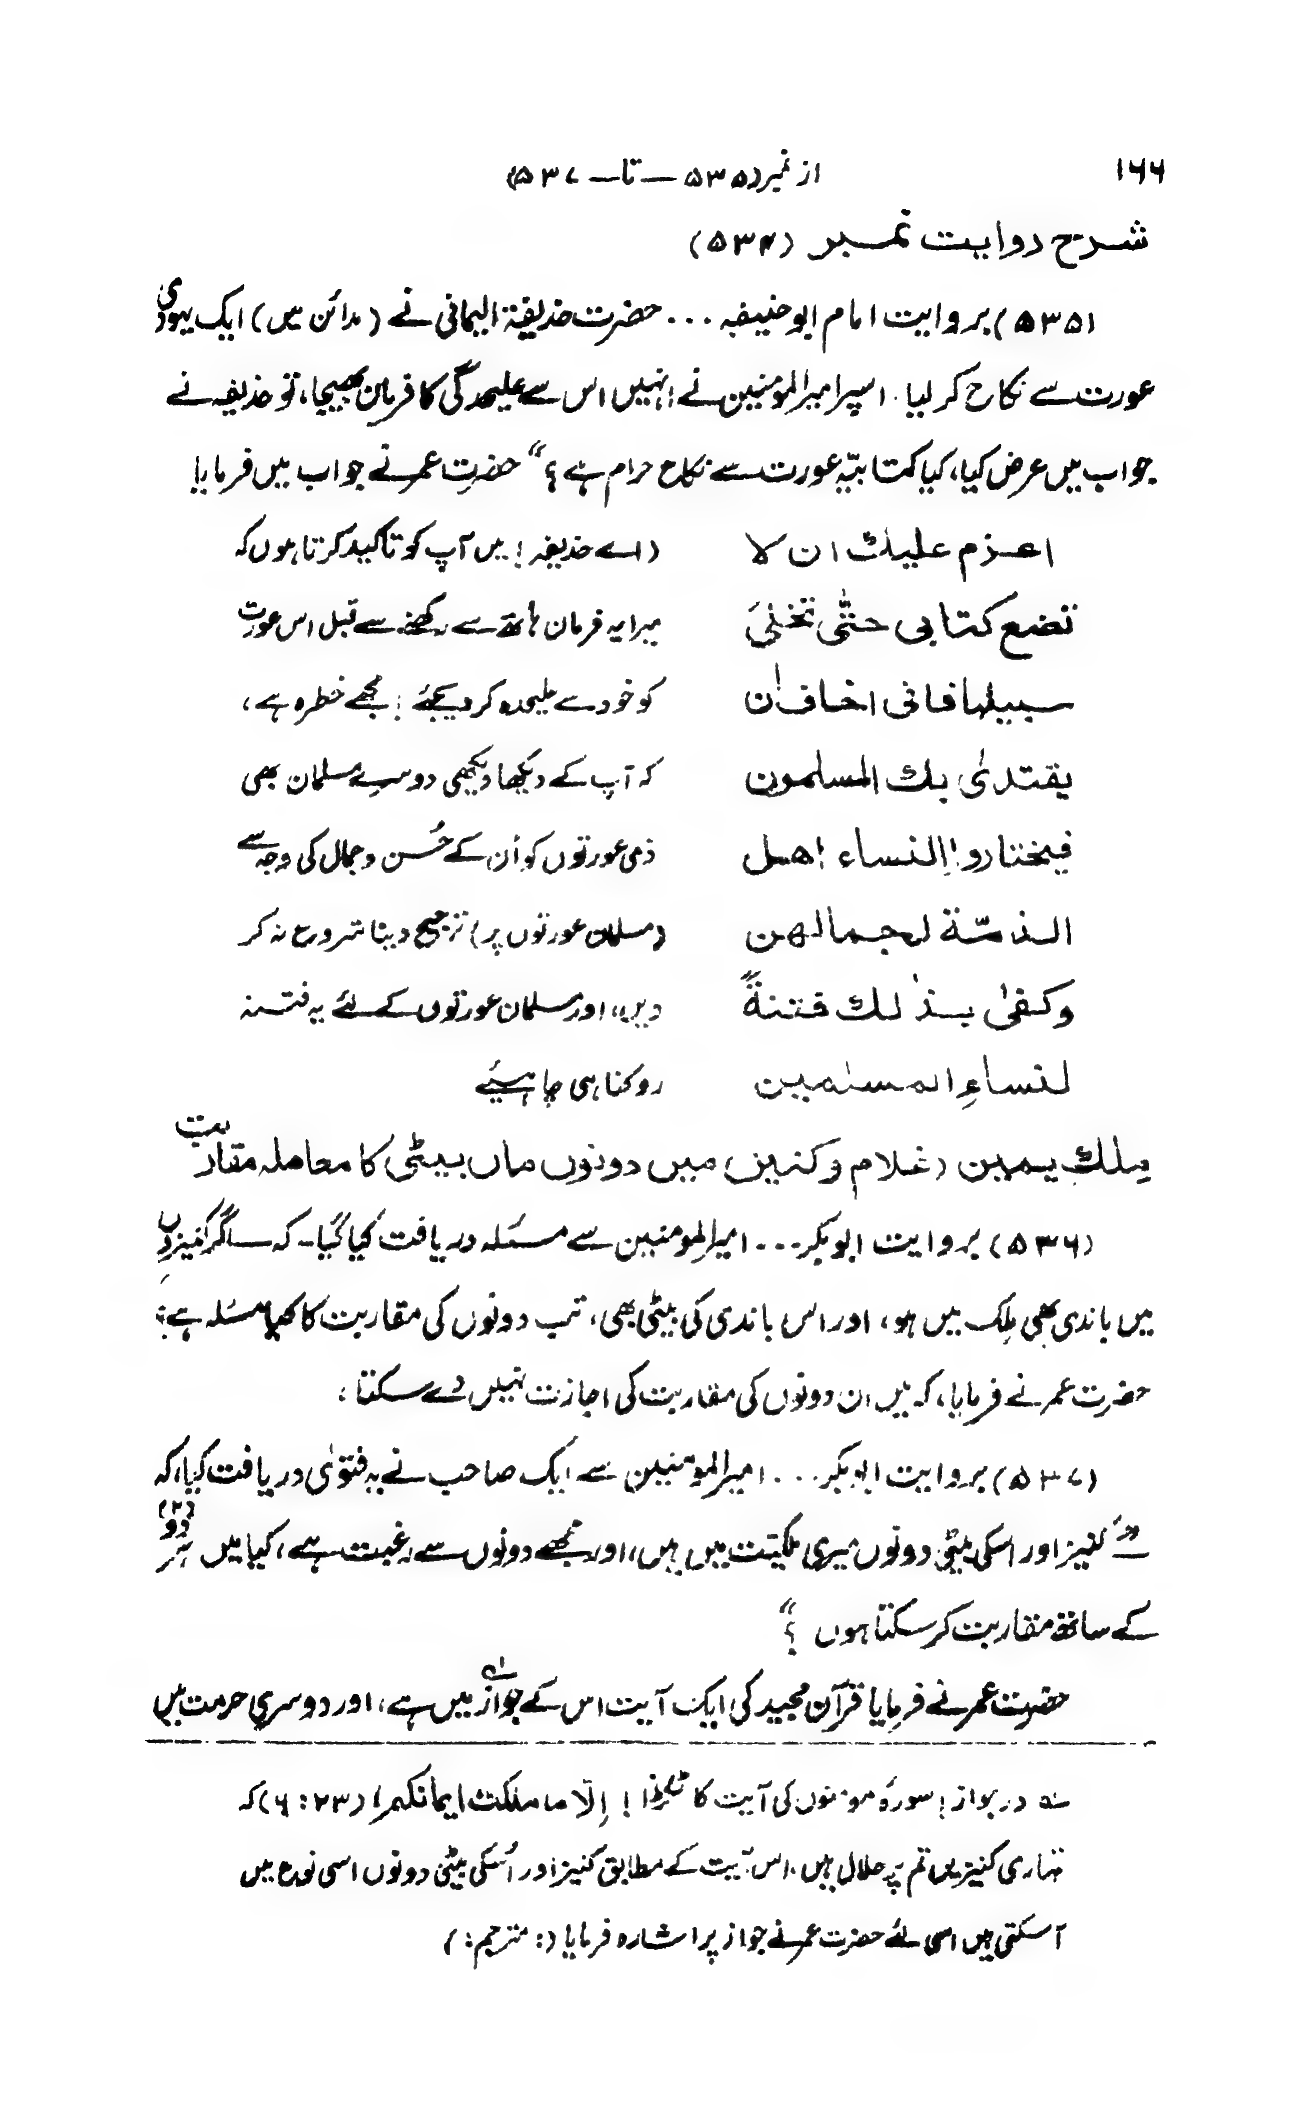 ۱۶۶
از نمبر (۵۳۵ — تا — ۵۳۷)
شرح روایت نمبر (۵۳۴)
(۵۳۵) بروایت امام ابو حنیفہ ... حضرت حذیفۃ الیمانی نے (مدائن میں) ایک یہودی
عورت سے نکاح کر لیا۔ اسپر امیرالمومنین نے انہیں اس سے علیحدگی کا فرمان بھیجا، تو حذیفہ نے
جواب میں عرض کیا، کیا کتابیّہ عورت سے نکاح حرام ہے؟“ حضرت عمر نے جواب میں فرمایا
اعزم علیك ان لا (اے حذیفہ! میں آپ کو تاکید کرتا ہوں کہ
تضع کتابی حتّٰی تخلیَ میرا یہ فرمان ہاتھ سے رکھنے سے قبل اس عورت
سبیلہا فانی اخاف ان کو خود سے علیحدہ کر دیجئے! مجھے خطرہ ہے،
یقتدیٰ بك المسلمون کہ آپ کے دیکھا دیکھی دوسرے مسلمان بھی
فیختاروا النساء اھل ذمی عورتوں کو اُن کے حُسن و جمال کی وجہ سے
الذمّة لجمالھن (مسلمان عورتوں پر) ترجیح دینا شروع نہ کر
وکفیٰ بذٰلك فتنةً دیں، اور مسلمان عورتوں کے لئے یہ فتنہ
لنساءِ المسلمین روکنا ہی چاہیئے
مِلك یمین (غلام و کنیز) میں دونوں ماں بیٹی کا معاملہ مقاربت
(۵۳۶) بروایت ابو بکر... امیرالمومنین سے مسئلہ دریافت کیا گیا۔ کہ اگر کنیزوں
میں باندی بھی مِلک میں ہو، اور اس باندی کی بیٹی بھی، تب دونوں کی مقاربت کا کیا مسئلہ ہے؟
حضرت عمر نے فرمایا، کہ میں ان دونوں کی مقاربت کی اجازت نہیں دے سکتا؛
(۵۳۷) بروایت ابو بکر... امیرالمومنین سے ایک صاحب نے یہ فتویٰ دریافت کیا، کہ
”کنیز اور اسکی بیٹی دونوں میری ملکیت میں ہیں، اور مجھے دونوں سے رغبت ہے، کیا میں ہر دو (۲)
کے ساتھ مقاربت کر سکتا ہوں؟“
حضرت عمر نے فرمایا قرآن مجید کی ایک آیت اس کے جواز میں ہے، اور دوسری حرمت میں
؎ در جواز! سورۂ مومنوں کی آیت کا ٹکڑا! اِلّا ما ملکت ایمانکم! (۲۳: ۶) کہ
تمہاری کنیزیں تم پر حلال ہیں، اس آیت کے مطابق کنیز اور اُسکی بیٹی دونوں اسی نوع میں
آ سکتی ہیں اسی لئے حضرت عمر نے جواز پر اشارہ فرمایا (: مترجم :)